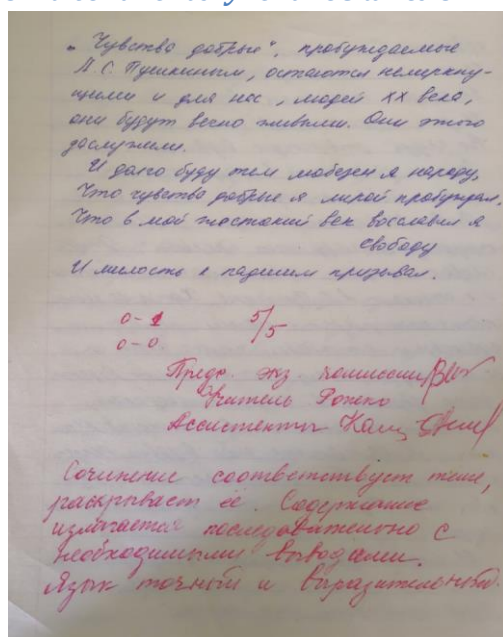 „Чувства добрые", пробуждаемые
А.С. Пушкиным, остаются немеркну-
щими и для нас, людей XX века,
они будут вечно живыми. Они этого
заслужили.
И долго буду тем любезен я народу,
Что чувства добрые я лирой пробуждал,
Что в мой жестокий век восславил я
свободу
И милость к падшим призывал.
0-1 5/5
0-0
Предс. экз. комиссии
Учитель
Ассистенты
Сочинение соответствует теме,
раскрывает её. Содержание
излагается последовательно с
необходимыми выводами.
Язык точный и выразительный.